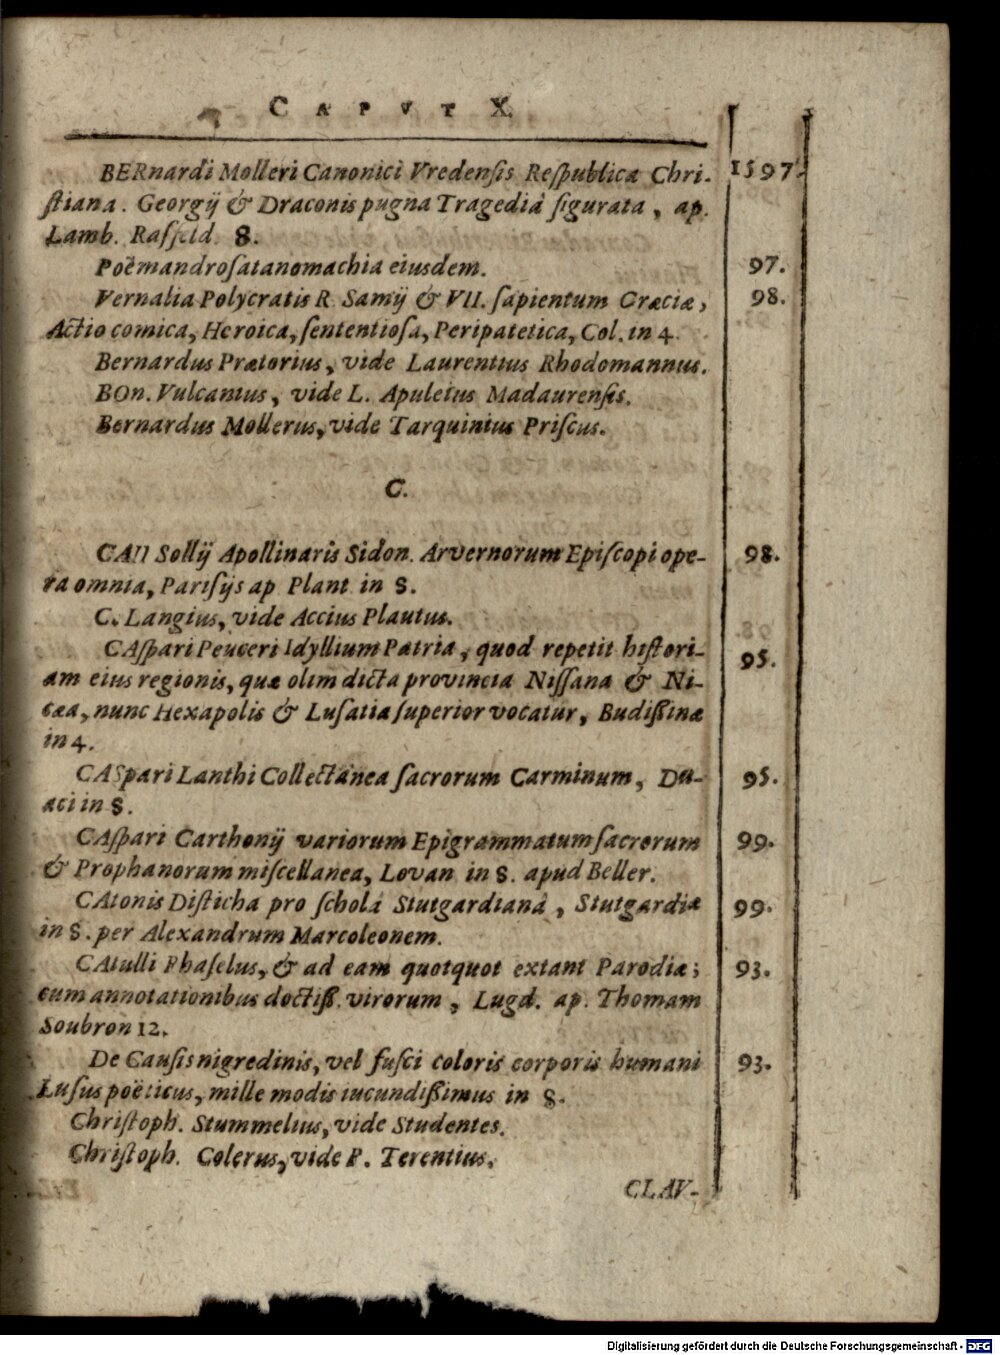 CAPVT X.
BERnardi Molleri Canonici Vredensis Respublica Chri- 1597.
stiana. Georgij & Draconis pugna Tragediâ figurata, ap.
Lamb. Rasfeld. 8.
Poëmandrosatanomachia eiusdem. 97.
Vernalia Polycratis R. Samij & VII. sapientum Græciæ, 98.
Actio comica, Heroica, sententiosa, Peripatetica, Col. in 4.
Bernardus Prætorius, vide Laurentius Rhodomannus.
BOn. Vulcanius, vide L. Apuleius Madaurensis.
Bernardus Mollerus, vide Tarquinius Priscus.
C.
CAII Sollij Apollinaris Sidon. Arvernorum Episcopi ope- 98.
ra omnia, Parisijs ap Plant. in 8.
C. Langius, vide Accius Plautus.
CAspari Peuceri Idyllium Patria, quod repetit histori- 95.
am eius regionis, quæ olim dicta provincia Nissana & Ni-
cæa, nunc Hexapolis & Lusatia superior vocatur, Budissinæ
in 4.
CASpari Lanthi Collectanea sacrorum Carminum, Du- 95.
aci in 8.
CAspari Carthonij variorum Epigrammatum sacrorum 99.
& Prophanorum miscellanea, Lovan. in 8. apud Beller.
CAtonis Disticha pro scholâ Stutgardianâ, Stutgardiæ 99.
in 8. per Alexandrum Marcoleonem.
CAtulli Phaselus, & ad eam quotquot extant Parodiæ; 93.
cum annotationibus doctiss. virorum, Lugd. ap. Thomam
Soubron 12.
De Causis nigredinis, vel fusci coloris corporis humani 93.
Lusus poëticus, mille modis iucundissimus in 8.
Christoph. Stummelius, vide Studentes.
Christoph. Colerus, vide P. Terentius.
CLAV-
Digitalisierung gefördert durch die Deutsche Forschungsgemeinschaft - DFG